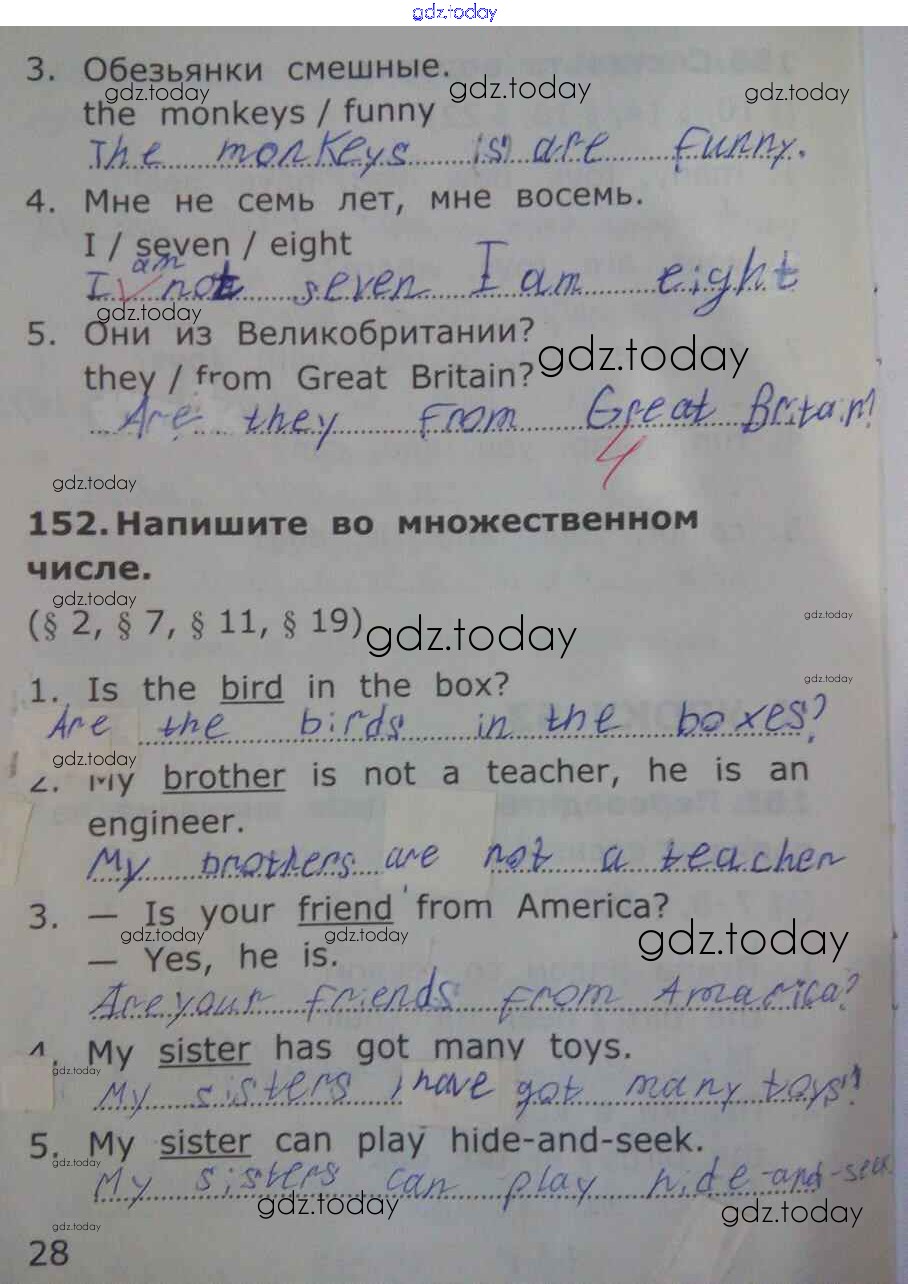 gdz.today
3. Обезьянки смешные.
gdz.today gdz.today gdz.today
the monkeys / funny
The monkeys is are funny.
4. Мне не семь лет, мне восемь.
I / seven / eight
am
I not seven I am eight
gdz.today
5. Они из Великобритании?
gdz.today
they / from Great Britain?
Are they from Great Britain?
4
gdz.today
152. Напишите во множественном
числе.
gdz.today gdz.today
(§ 2, § 7, § 11, § 19)
gdz.today
gdz.today
1. Is the bird in the box?
Are the birds in the boxes?
gdz.today
2. My brother is not a teacher, he is an
engineer.
My brothers are not a teacher
3. — Is your friend from America?
gdz.today gdz.today gdz.today
— Yes, he is.
Are your friends from Amarica?
4. My sister has got many toys.
gdz.today
My sisters have got many toys?
5. My sister can play hide-and-seek.
gdz.today
My sisters can play hide-and-seek
gdz.today gdz.today
gdz.today
28